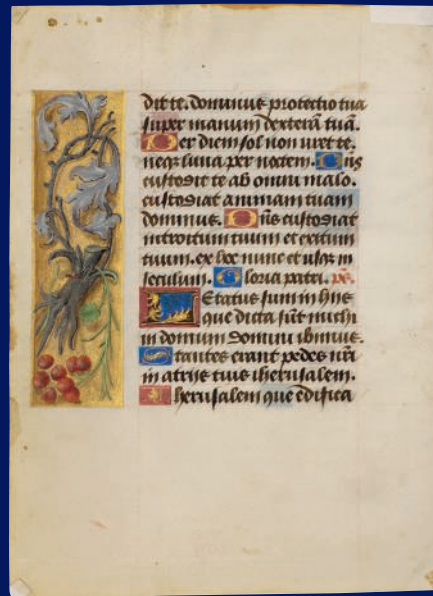 dit te. dominus protectio tua
super manum dexterā tuā.
Per diem sol non uret te.
neqȝ luna per noctem. Dn̄s
custodit te ab omni malo.
custodiat animam tuam
dominus. Dn̄s custodiat
introitum tuum et exitum
tuum. ex hoc nunc et usqȝ in
seculum. Gloria patri. ps̄.
Letatus sum in hijs
que dicta sūt michi
in domum domini ibimus.
Stantes erant pedes nr̄i
in atrijs tuis iherusalem.
Iherusalem que edifica